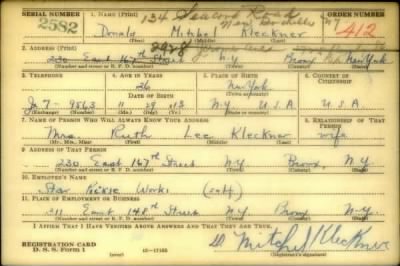 SERIAL NUMBER
1. NAME (Print)
134 Seacord Road
New Rochelle NY
ORDER NUMBER
2582
Donald Mitchel Kleckner
412
(First) (Middle) (Last)
2. ADDRESS (Print)
230 East 167th Street N.Y. Bronx New York
(Number and street or R. F. D. number) (Town) (County) (State)
3. TELEPHONE
4. AGE IN YEARS
5. PLACE OF BIRTH
6. COUNTRY OF CITIZENSHIP
26
New York
DATE OF BIRTH
(Town or county)
Je 7-9563 11 29 13 N.Y. U.S.A. U.S.A.
(Exchange) (Number) (Mo.) (Day) (Yr.) (State or country)
7. NAME OF PERSON WHO WILL ALWAYS KNOW YOUR ADDRESS
8. RELATIONSHIP OF THAT PERSON
Mrs. Ruth Lee Kleckner wife
(Mr., Mrs., Miss) (First) (Middle) (Last)
9. ADDRESS OF THAT PERSON
230 East 167th Street N.Y. Bronx, N.Y.
(Number and street or R. F. D. number) (Town) (County) (State)
10. EMPLOYER'S NAME
Star Works
11. PLACE OF EMPLOYMENT OR BUSINESS
211 East 148th Street N.Y. Bronx N.Y.
(Number and street or R. F. D. number) (Town) (County) (State)
I AFFIRM THAT I HAVE VERIFIED ABOVE ANSWERS AND THAT THEY ARE TRUE.
REGISTRATION CARD
D. S. S. Form 1
16—17105
D Mitchel Kleckner
(Registrant's signature)